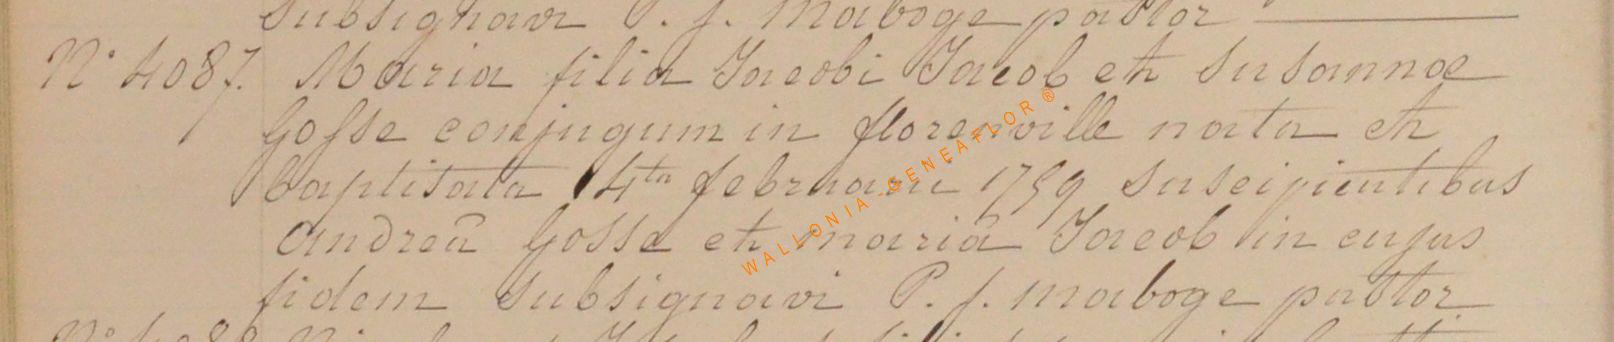 subsignavi P. J. Maboge pastor
N° 4087. Maria filia Jacobi Jacob et Susannae
Gosse conjugum in florenville nata et
baptisata 14ta februarii 1759 suscipientibus
Andreā Gosse et mariā Jacob in cujus
fidem subsignavi P. J. Maboge pastor
WALLONIA-GENEAFLOR®